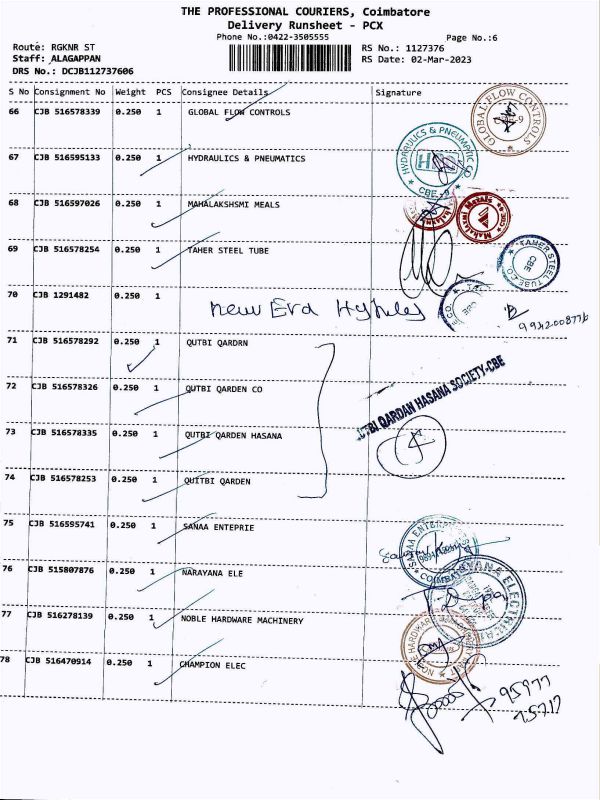 THE PROFESSIONAL COURIERS, Coimbatore
Delivery Runsheet - PCX
Phone No.:0422-3505555
Page No.:6
Route: RGKNR ST
RS No.: 1127376
Staff: ALAGAPPAN
RS Date: 02-Mar-2023
DRS No.: DCJB112737606
S No Consignment No Weight PCS Consignee Details Signature
66 CJB 516578339 0.250 1 GLOBAL FLOW CONTROLS
GLOBAL FLOW CONTROLS
HYDRAULICS & PNEUMATIC CO
67 CJB 516595133 0.250 1 HYDRAULICS & PNEUMATICS
CBE
68 CJB 516597026 0.250 1 MAHALAKSHSMI MEALS
69 CJB 516578254 0.250 1 TAHER STEEL TUBE
TAHER STEEL TUBE CO
CBE
70 CJB 1291482 0.250 1 New Era Hyhles
9942008776
71 CJB 516578292 0.250 1 QUTBI QARDRN
72 CJB 516578326 0.250 1 QUTBI QARDEN CO
QUTBI QARDAN HASANA SOCIETY-CBE
73 CJB 516578335 0.250 1 QUTBI QARDEN HASANA
74 CJB 516578253 0.250 1 QUITBI QARDEN
75 CJB 516595741 0.250 1 SANAA ENTEPRIE
76 CJB 515807876 0.250 1 NARAYANA ELE
77 CJB 516278139 0.250 1 NOBLE HARDWARE MACHINERY
78 CJB 516470914 0.250 1 CHAMPION ELEC
95977
75717